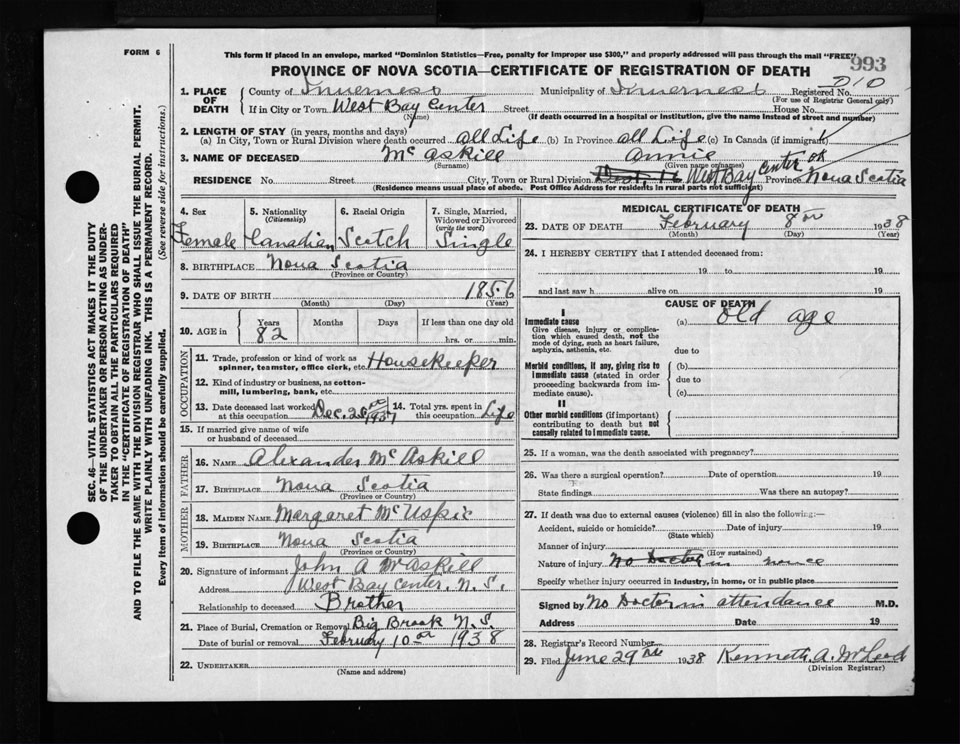 FORM 6
This form if placed in an envelope, marked "Dominion Statistics—Free, penalty for improper use $300," and properly addressed will pass through the mail "FREE"
993
PROVINCE OF NOVA SCOTIA—CERTIFICATE OF REGISTRATION OF DEATH
1. PLACE OF DEATH
County of Inverness Municipality of Inverness Registered No.
(For use of Registrar General only)
If in City or Town West Bay Center Street House No.
(Name) (If death occurred in a hospital or institution, give the name instead of street and number)
2. LENGTH OF STAY (in years, months and days)
(a) In City, Town or Rural Division where death occurred all Life (b) In Province all Life (c) In Canada (if immigrant)
3. NAME OF DECEASED Mc Askill Annie
(Surname) (Given name or names)
RESIDENCE No. Street City, Town or Rural Division West Bay Center Province Nova Scotia
(Residence means usual place of abode. Post Office Address for residents in rural parts not sufficient)
4. Sex 5. Nationality 6. Racial Origin 7. Single, Married, Widowed or Divorced
(Citizenship) (write the word)
Female Canadian Scotch Single
8. BIRTHPLACE Nova Scotia
(Province or Country)
9. DATE OF BIRTH 1856
(Month) (Day) (Year)
10. AGE in Years Months Days If less than one day old
82 hrs. or min.
OCCUPATION
11. Trade, profession or kind of work as spinner, teamster, office clerk, etc. Housekeeper
12. Kind of industry or business, as cotton-mill, lumbering, bank, etc.
13. Date deceased last worked at this occupation Dec. 1937 14. Total yrs. spent in this occupation Life
15. If married give name of wife or husband of deceased
FATHER
16. NAME Alexander Mc Askill
17. BIRTHPLACE Nova Scotia
(Province or Country)
MOTHER
18. MAIDEN NAME Margaret McUspic
19. BIRTHPLACE Nova Scotia
(Province or Country)
20. Signature of informant John A McAskill
Address West Bay Center, N. S.
Relationship to deceased Brother
21. Place of Burial, Cremation or Removal Big Brook N.S.
Date of burial or removal February 10 1938
22. UNDERTAKER
(Name and address)
MEDICAL CERTIFICATE OF DEATH
23. DATE OF DEATH February 8 1938
(Month) (Day) (Year)
24. I HEREBY CERTIFY that I attended deceased from:
19 to 19
and last saw h alive on 19
CAUSE OF DEATH
I
Immediate cause (a) old age
Give disease, injury or complication which caused death, not the mode of dying, such as heart failure, asphyxia, asthenia, etc.
due to
Morbid conditions, if any, giving rise to immediate cause (stated in order proceeding backwards from immediate cause). (b)
due to
(c)
II
Other morbid conditions (if important) contributing to death but not causally related to immediate cause.
25. If a woman, was the death associated with pregnancy?
26. Was there a surgical operation? Date of operation 19
State findings Was there an autopsy?
27. If death was due to external causes (violence) fill in also the following:—
Accident, suicide or homicide? Date of injury 19
(State which)
Manner of injury
(How sustained)
Nature of injury No Doctor in
Specify whether injury occurred in industry, in home, or in public place
Signed by No Doctor in attendance M.D.
Address Date 19
28. Registrar's Record Number
29. Filed June 29th 1938 Kenneth A. McLeod
(Division Registrar)
SEC. 46—VITAL STATISTICS ACT MAKES IT THE DUTY
OF THE UNDERTAKER OR PERSON ACTING AS UNDER-
TAKER TO OBTAIN ALL THE PARTICULARS REQUIRED
IN THE "CERTIFICATE OF REGISTRATION OF DEATH"
AND TO FILE THE SAME WITH THE DIVISION REGISTRAR WHO SHALL ISSUE THE BURIAL PERMIT.
WRITE PLAINLY WITH UNFADING INK. THIS IS A PERMANENT RECORD.
Every item of information should be carefully supplied. (See reverse side for instructions.)